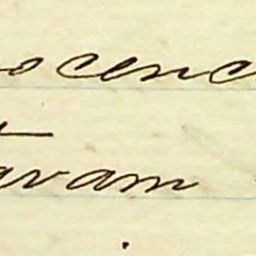 ocenc
avam